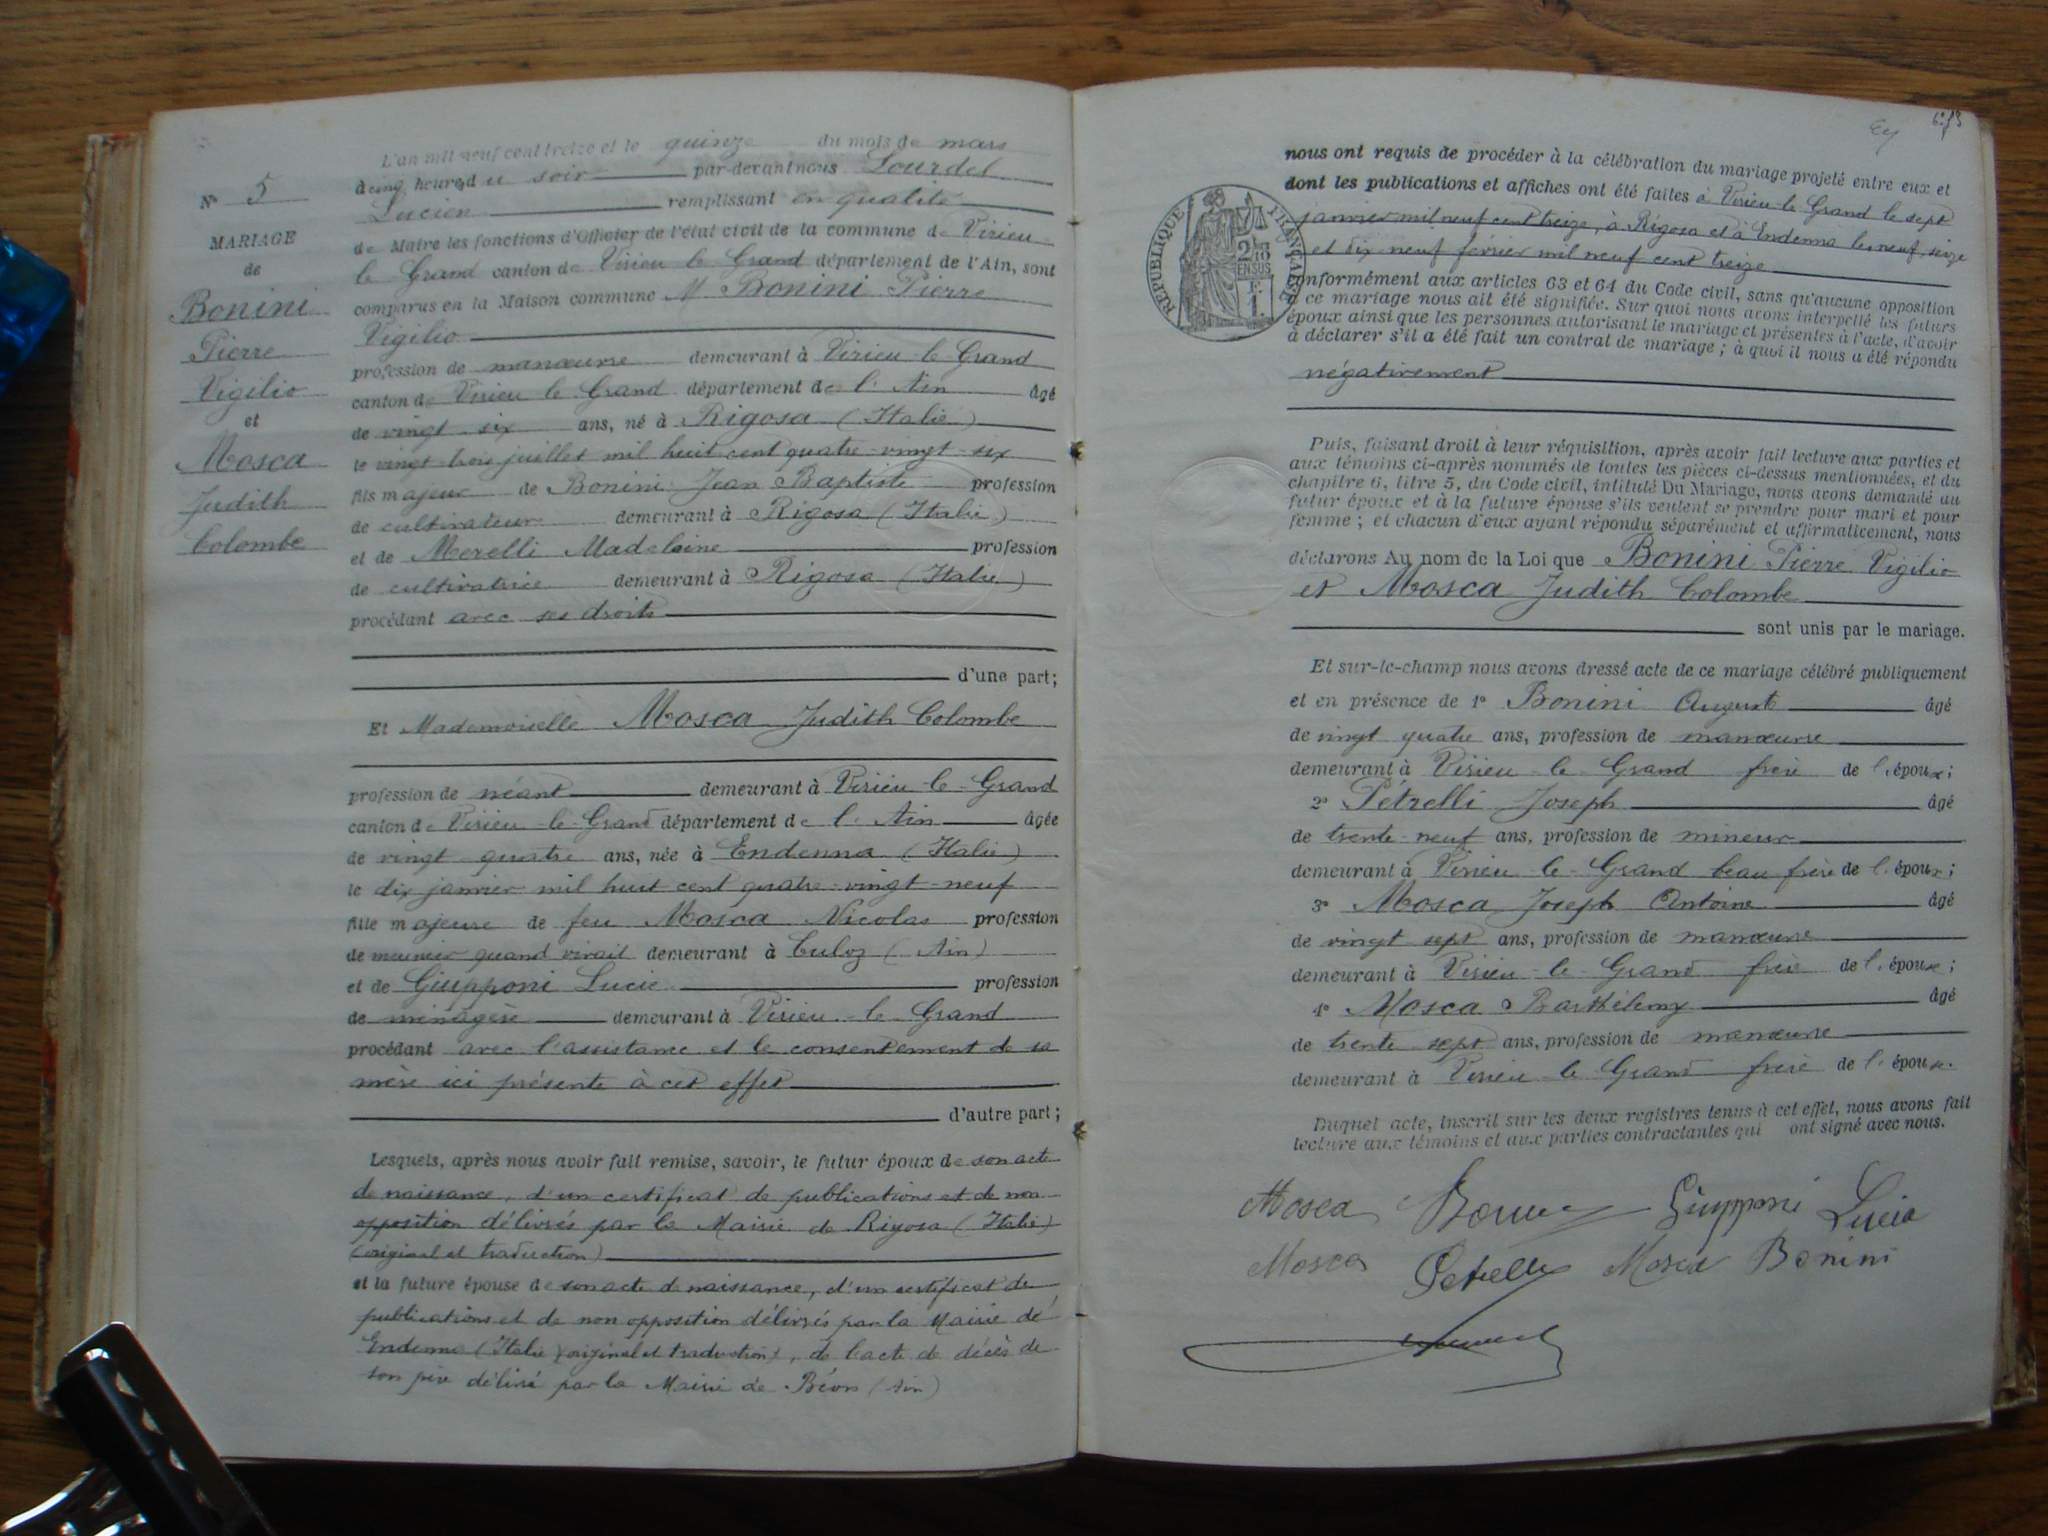 L'an mil neuf cent treize et le quinze du mois de mars
à cinq heures du soir par-devant nous Lourdel
Lucien remplissant en qualité
de Maire les fonctions d'Officier de l'état civil de la commune de Virieu-
le Grand canton de Virieu le Grand département de l'Ain, sont
comparus en la Maison commune M Bonini Pierre
Vigilio
profession de manœuvre demeurant à Virieu-le-Grand
canton de Virieu le Grand département de l'Ain âgé
de vingt-six ans, né à Rigosa (Italie)
le vingt-trois juillet mil huit cent quatre-vingt-six
fils majeur de Bonini Jean Baptiste profession
de cultivateur demeurant à Rigosa (Italie)
et de Merelli Madeleine profession
de cultivatrice demeurant à Rigosa (Italie)
procédant avec ses droits
d'une part;
Et Mademoiselle Mosca Judith Colombe
profession de néant demeurant à Virieu-le-Grand
canton de Virieu-le-Grand département de l'Ain âgée
de vingt quatre ans, née à Endenna (Italie)
le dix janvier mil huit cent quatre-vingt-neuf
fille majeure de feu Mosca Nicolas profession
de meunier quand vivait demeurant à Culoz (Ain)
et de Giupponi Lucie profession
de ménagère demeurant à Virieu-le-Grand
procédant avec l'assistance et le consentement de sa
mère ici présente à cet effet
d'autre part;
Lesquels, après nous avoir fait remise, savoir, le futur époux de son acte
de naissance, d'un certificat de publications et de non-
opposition délivrés par la Mairie de Rigosa (Italie)
(original et traduction)
et la future épouse de son acte de naissance, d'un certificat de
publications et de non opposition délivrés par la Mairie de
Endenna (Italie) (original et traduction), de l'acte de décès de
son père délivré par la Mairie de Béon (Ain)
N° 5
MARIAGE
de
Bonini
Pierre
Vigilio
et
Mosca
Judith
Colombe
nous ont requis de procéder à la célébration du mariage projeté entre eux et
dont les publications et affiches ont été faites à Virieu-le-Grand le sept
janvier mil neuf cent treize, à Rigosa et à Endenna les neuf, seize
et dix-neuf février mil neuf cent treize
conformément aux articles 63 et 64 du Code civil, sans qu'aucune opposition
à ce mariage nous ait été signifiée. Sur quoi nous avons interpellé les futurs
époux ainsi que les personnes autorisant le mariage et présentes à l'acte, d'avoir
à déclarer s'il a été fait un contrat de mariage; à quoi il nous a été répondu
négativement
RÉPUBLIQUE FRANÇAISE
2/10
EN SUS
F.
1.
Puis, faisant droit à leur réquisition, après avoir fait lecture aux parties et
aux témoins ci-après nommés de toutes les pièces ci-dessus mentionnées, et du
chapitre 6, titre 5, du Code civil, intitulé Du Mariage, nous avons demandé au
futur époux et à la future épouse s'ils veulent se prendre pour mari et pour
femme; et chacun d'eux ayant répondu séparément et affirmativement, nous
déclarons Au nom de la Loi que Bonini Pierre Vigilio
et Mosca Judith Colombe
sont unis par le mariage.
Et sur-le-champ nous avons dressé acte de ce mariage célébré publiquement
et en présence de 1° Bonini August âgé
de vingt quatre ans, profession de manœuvre
demeurant à Virieu-le-Grand frère de l'époux;
2° Petrelli Joseph âgé
de trente-neuf ans, profession de mineur
demeurant à Virieu-le-Grand beau frère de l'époux;
3° Mosca Joseph Antoine âgé
de vingt sept ans, profession de manœuvre
demeurant à Virieu-le-Grand frère de l'épouse;
4° Mosca Barthélemy âgé
de trente sept ans, profession de manœuvre
demeurant à Virieu le Grand frère de l'épouse.
Duquel acte, inscrit sur les deux registres tenus à cet effet, nous avons fait
lecture aux témoins et aux parties contractantes qui ont signé avec nous.
Mosca Giupponi Lucia
Mosca Petrelli Mosca Bonini